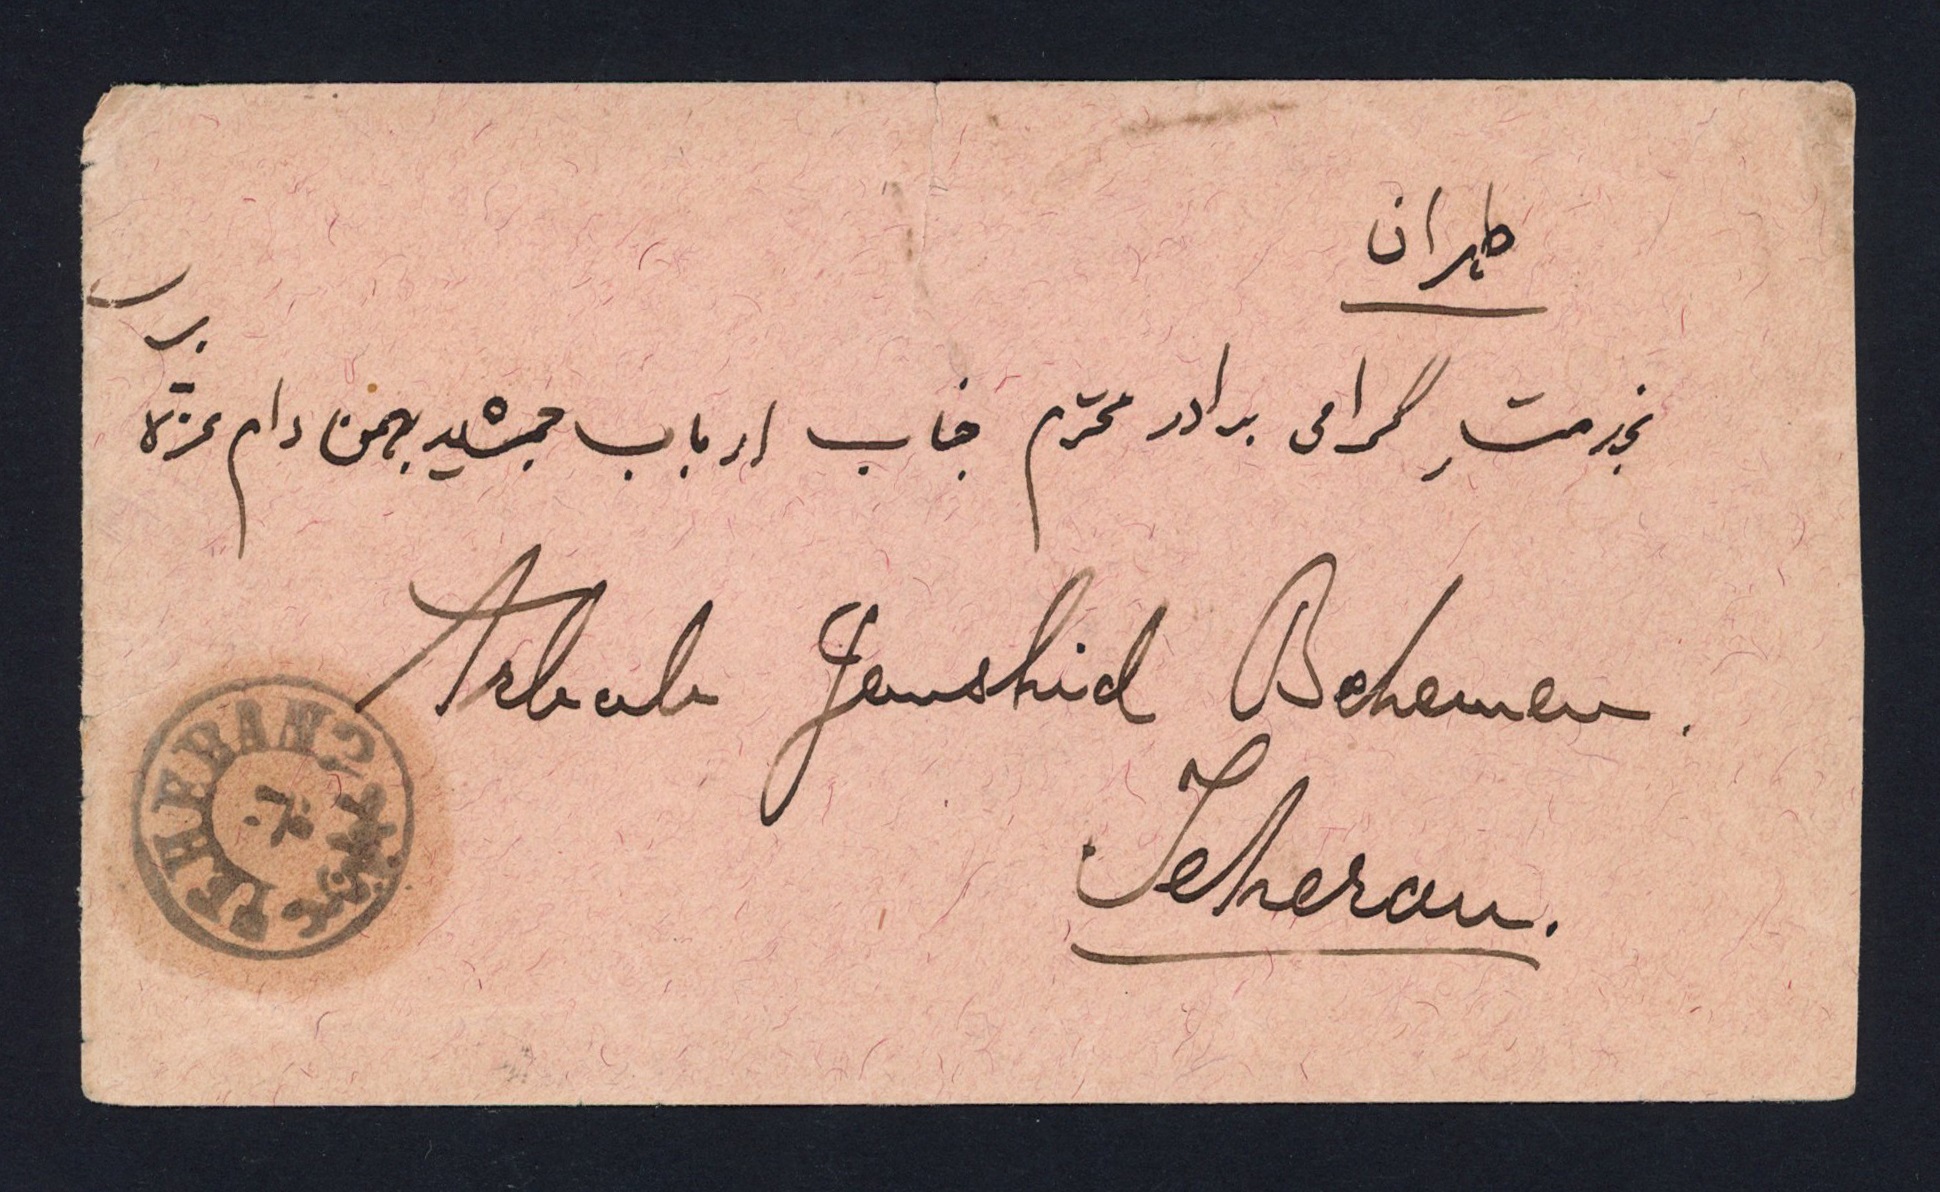 طهران
بخدمتِ گرامی برادر محترم جناب ارباب جمشید بهمن دام عزته
Arbab Jemshid Behemen.
Teheran.
TEHERAN